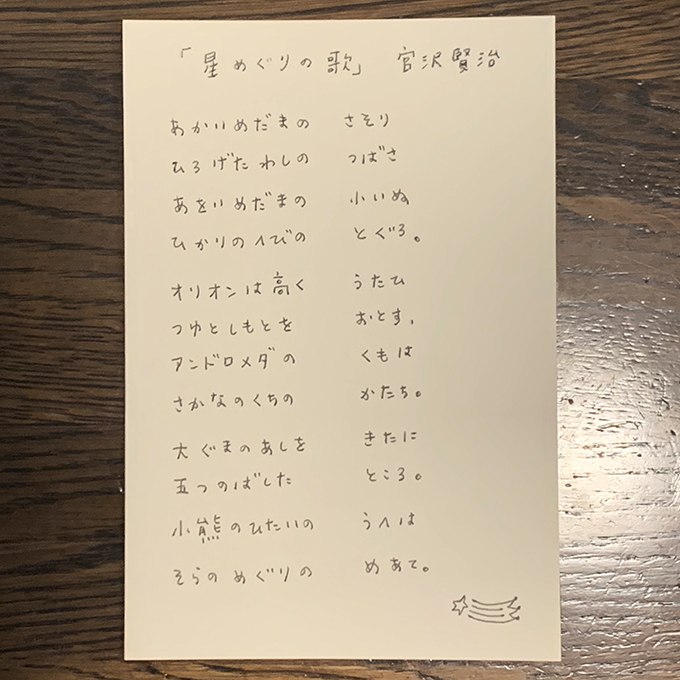 「星めぐりの歌」 宮沢賢治
あかいめだまの さそり
ひろげたわしの つばさ
あをいめだまの 小いぬ
ひかりのへびの とぐろ。
オリオンは高く うたひ
つゆとしもとを おとす、
アンドロメダの くもは
さかなのくちの かたち。
大ぐまのあしを きたに
五つのばした ところ。
小熊のひたいの うへは
そらのめぐりの めあて。